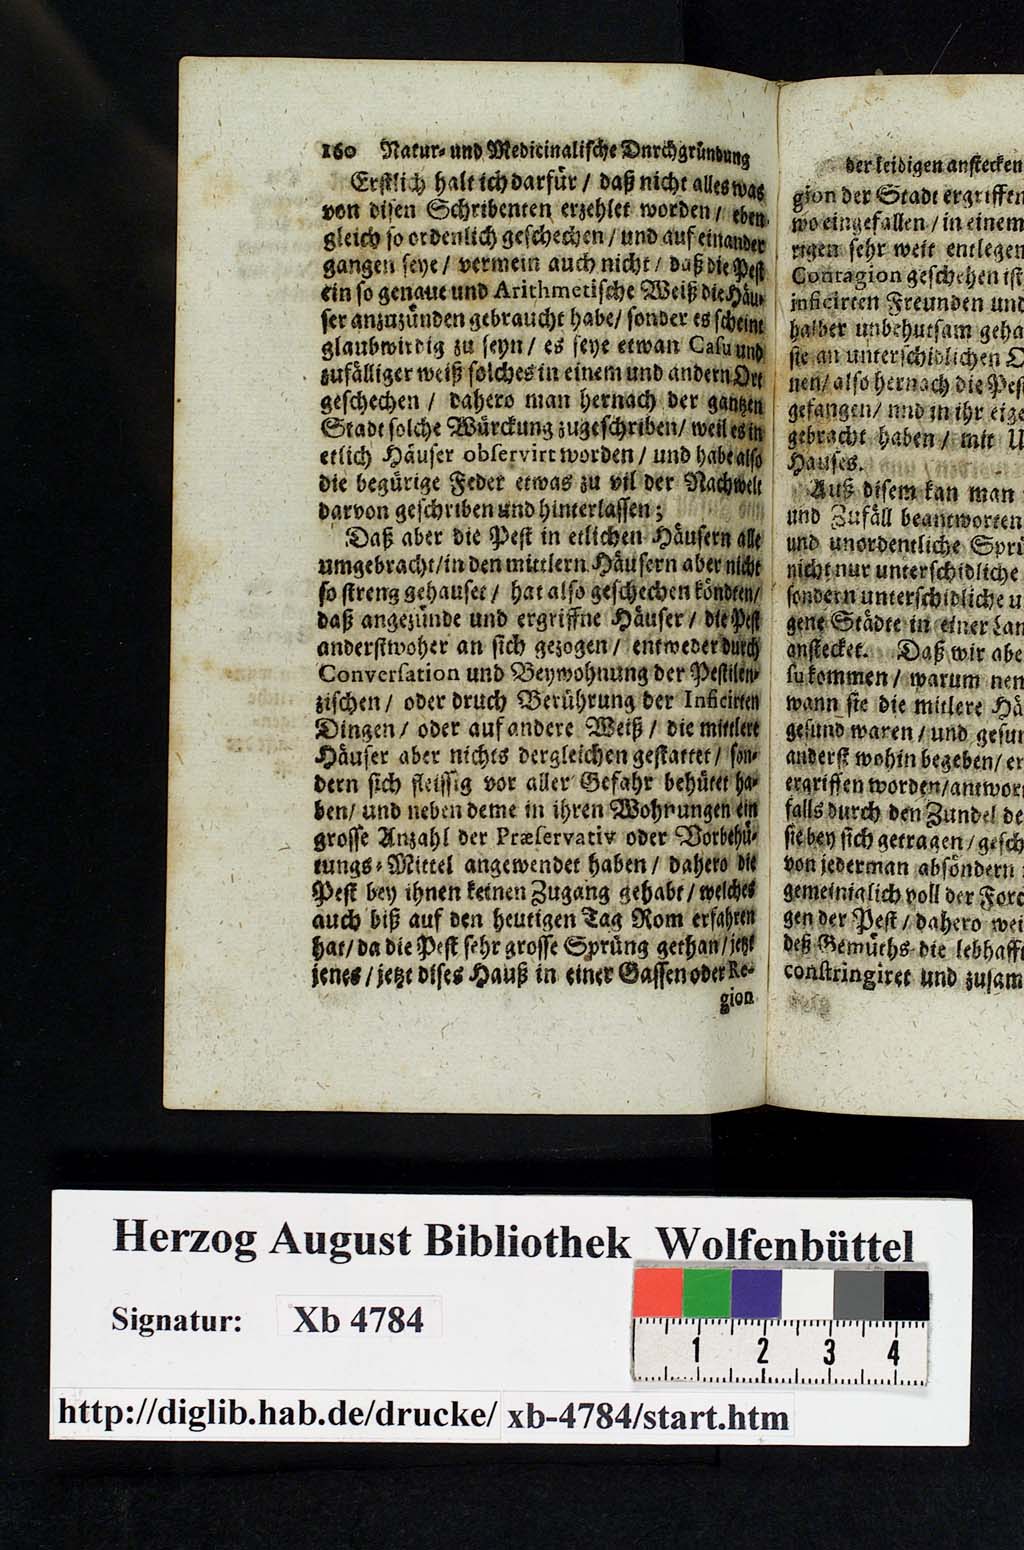 160 Natur- und Medicinalische Durchgründung
Erstlich halt ich darfür / daß nicht alles was
von disen Schribenten erzehlet worden / eben
gleich so ordenlich geschechen / und auf einander
gangen seye / vermein auch nicht / daß die Pest
ein so genaue und Arithmetische Weiß die Häu-
ser anzuzünden gebraucht habe / sonder es scheint
glaubwirdig zu seyn / es seye etwan Casu und
zufälliger weiß solches in einem und andern Ort
geschechen / dahero man hernach der gantzen
Stadt solche Würckung zugeschriben / weil es in
etlich Häuser observirt worden / und habe also
die begürige Feder etwas zu vil der Nachwelt
darvon geschriben und hinterlassen ;
Daß aber die Pest in etlichen Häusern alle
umgebracht / in den mittlern Häusern aber nicht
so streng gehauset / hat also geschechen köndten /
daß angezünde und ergriffne Häuser / die Pest
anderstwoher an sich gezogen / entweder durch
Conversation und Beywohnung der Pestilen-
zischen / oder druch Berührung der Inficirten
Dingen / oder auf andere Weiß / die mittlere
Häuser aber nichts dergleichen gestattet / son-
dern sich fleissig vor aller Gefahr behütet ha-
ben / und neben deme in ihren Wohnungen ein
grosse Anzahl der Præservativ oder Vorbehü-
tungs-Mittel angewendet haben / dahero die
Pest bey ihnen keinen Zugang gehabt / welches
auch biß auf den heutigen Tag Rom erfahren
hat / da die Pest sehr grosse Sprüng gethan / jetzt
jenes / jetzt dises Hauß in einer Gassen oder Re-
gion
der leidigen anstecken
gion der Stadt ergriffen
wo eingefallen / in einem
rigen sehr weit entlegen
Contagion geschehen ist
inficirten Freunden und
halber unbehutsam geha
sie an unterschidlichen O
nen / also hernach die Pest
gefangen / und in ihr eige
gebracht haben / mit U
Hauses.
Auß disem kan man
und Zufäll beantworten
und unordentliche Sprü
nicht nur unterschidliche
sondern unterschidliche u
gene Städte in einer Lan
anstecket. Daß wir abe
su kommen / warum nem
wann sie die mitlere Hä
gesund waren / und gesun
anderst wohin begeben / er
ergriffen worden / antwor
falls durch den Zundel de
sie bey sich getragen / gesch
von jederman absöndern
gemeiniglich voll der Forc
gen der Pest / dahero wei
deß Gemüths die lebhafft
constringiret und zusam
Herzog August Bibliothek Wolfenbüttel
Signatur: Xb 4784
1 2 3 4
http://diglib.hab.de/drucke/ xb-4784/start.htm